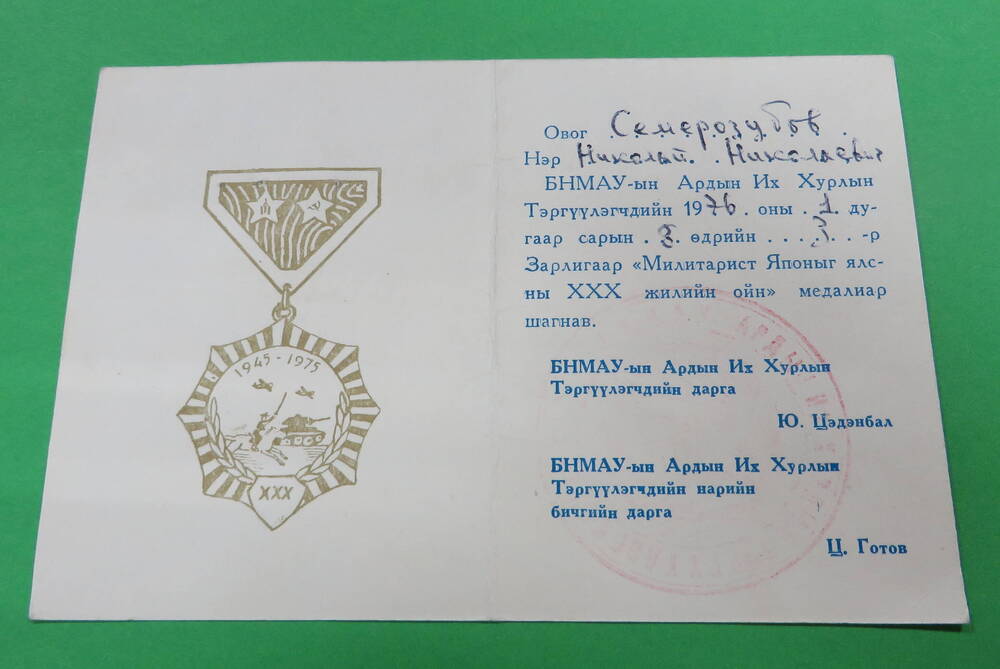 1945-1975
XXX
Овог Семерозубов
Нэр Николай Николаевич
БНМАУ-ын Ардын Их Хурлын
Тэргүүлэгчдийн 1976. оны . 1 ду-
гаар сарын . 3. өдрийн . . . 3. . -р
Зарлигаар «Милитарист Японыг ялс-
ны XXX жилийн ойн» медалиар
шагнав.
БНМАУ-ын Ардын Их Хурлын
Тэргүүлэгчдийн дарга
Ю. Цэдэнбал
БНМАУ-ын Ардын Их Хурлын
Тэргүүлэгчдийн нарийн
бичгийн дарга
Ц. Готов